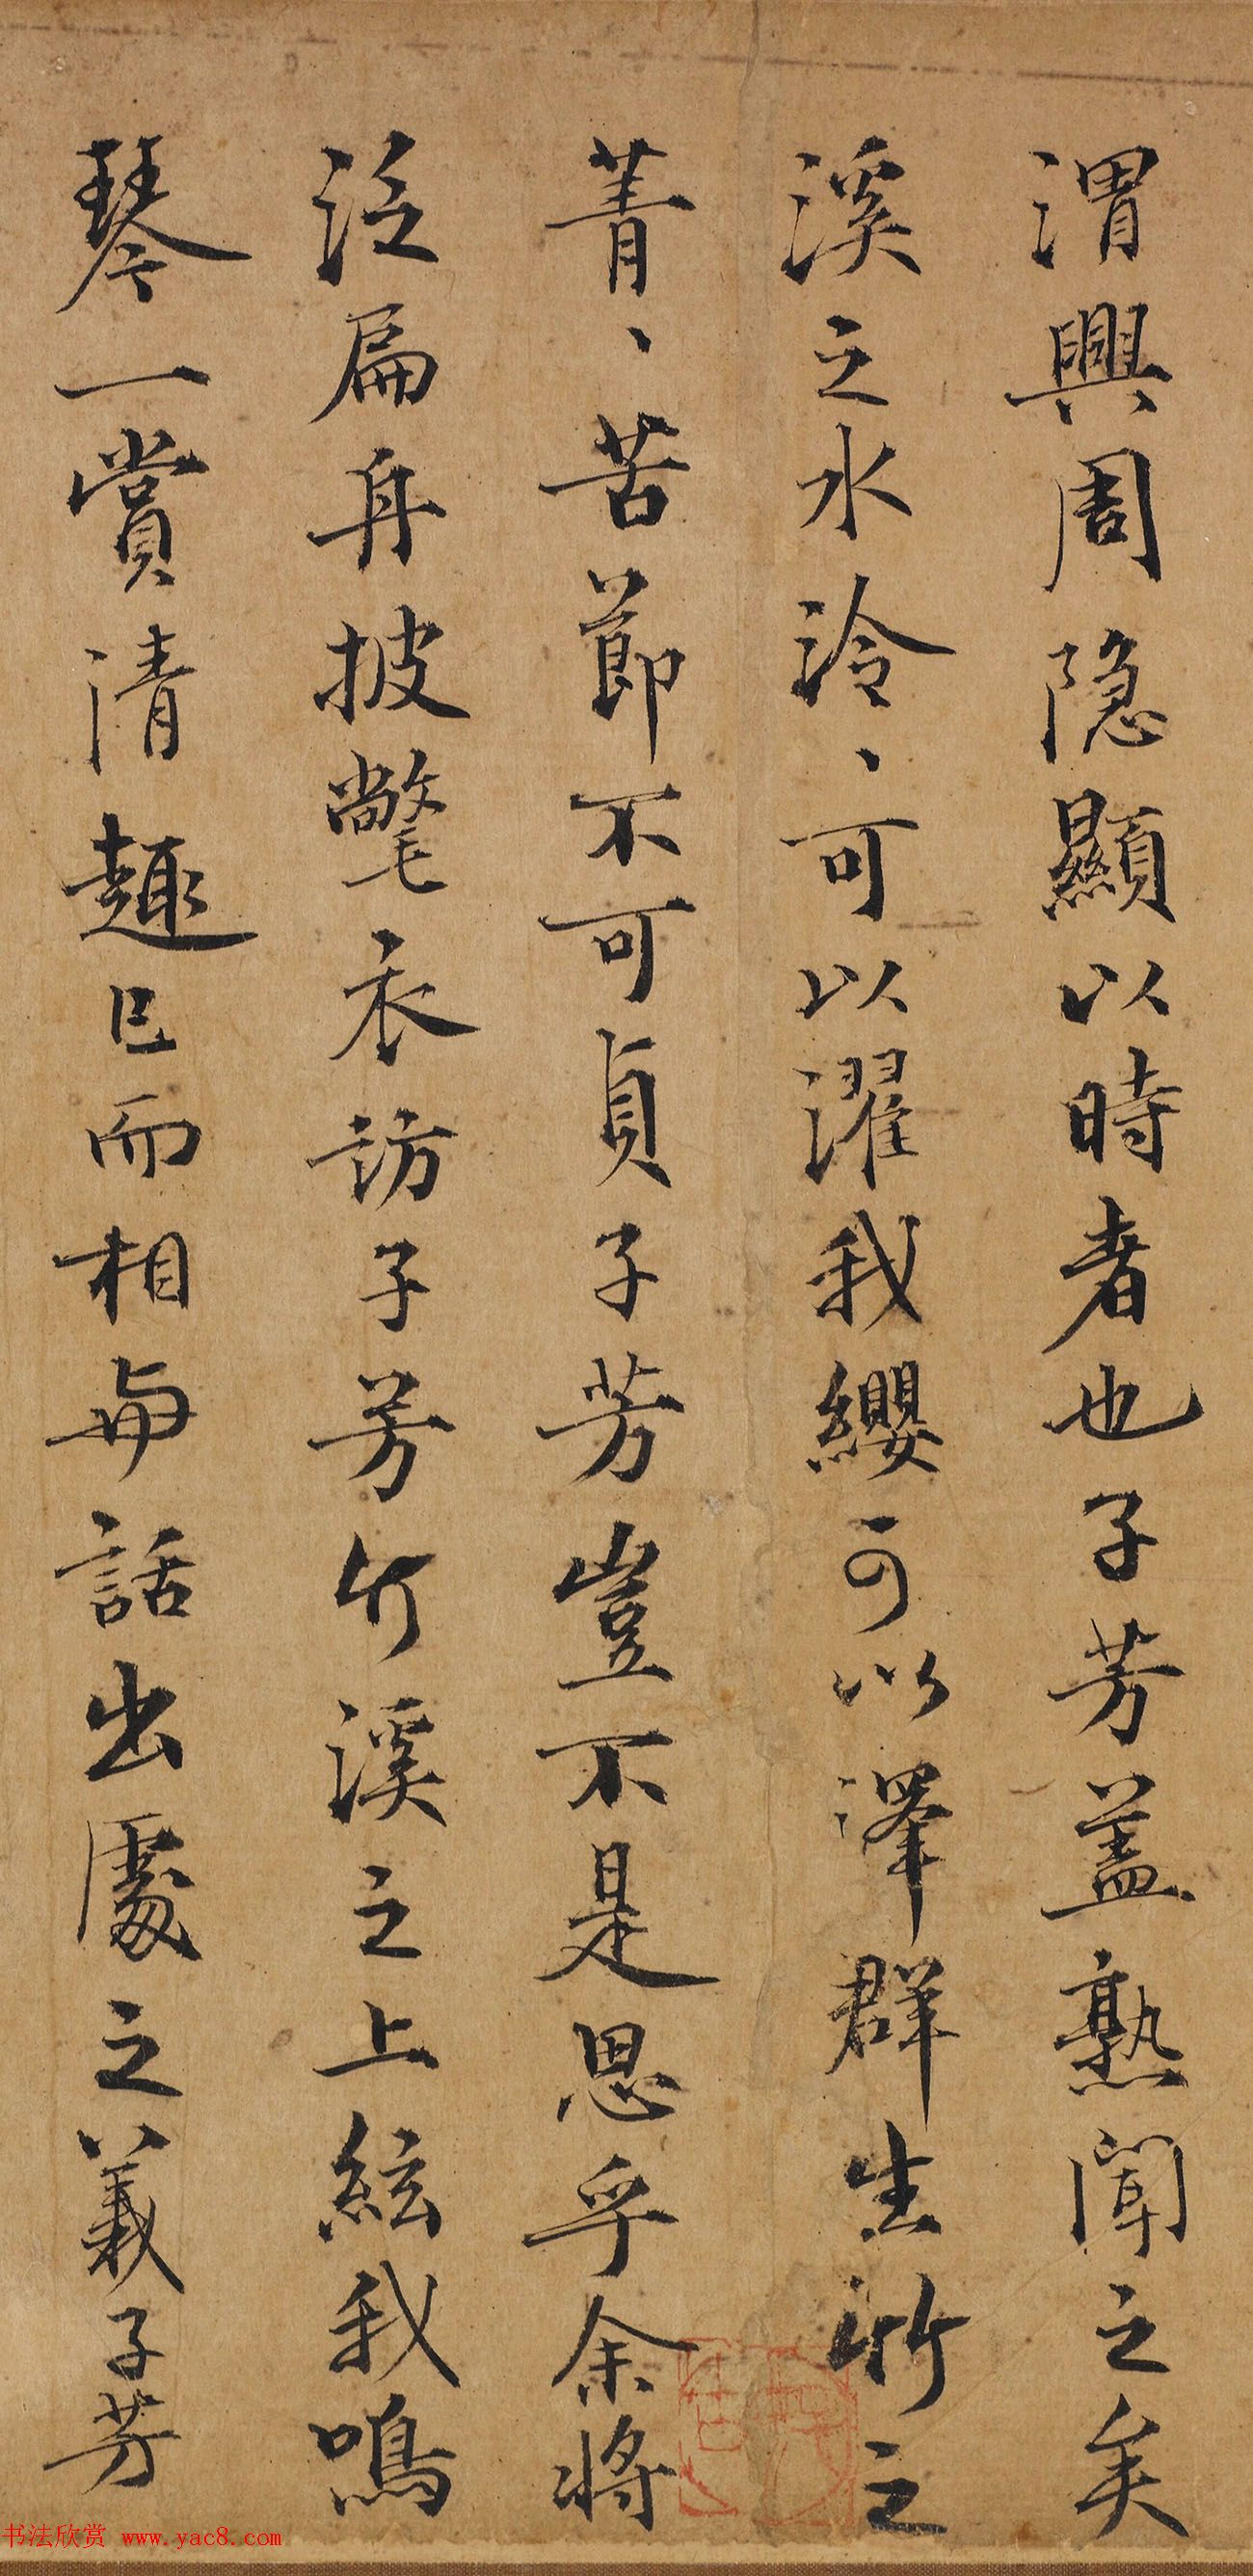 渭興周隐顯以時者也子芳盖熟聞之矣
溪之水泠〻可以濯我纓可以澤群生竹之
菁〻苦節不可貞子芳豈不是思乎余將
泛扁舟披氅衣訪子芳竹溪之上絃我鳴
琴一賞清趣已而相與話出處之義子芳
书法欣赏 www.yac8.com